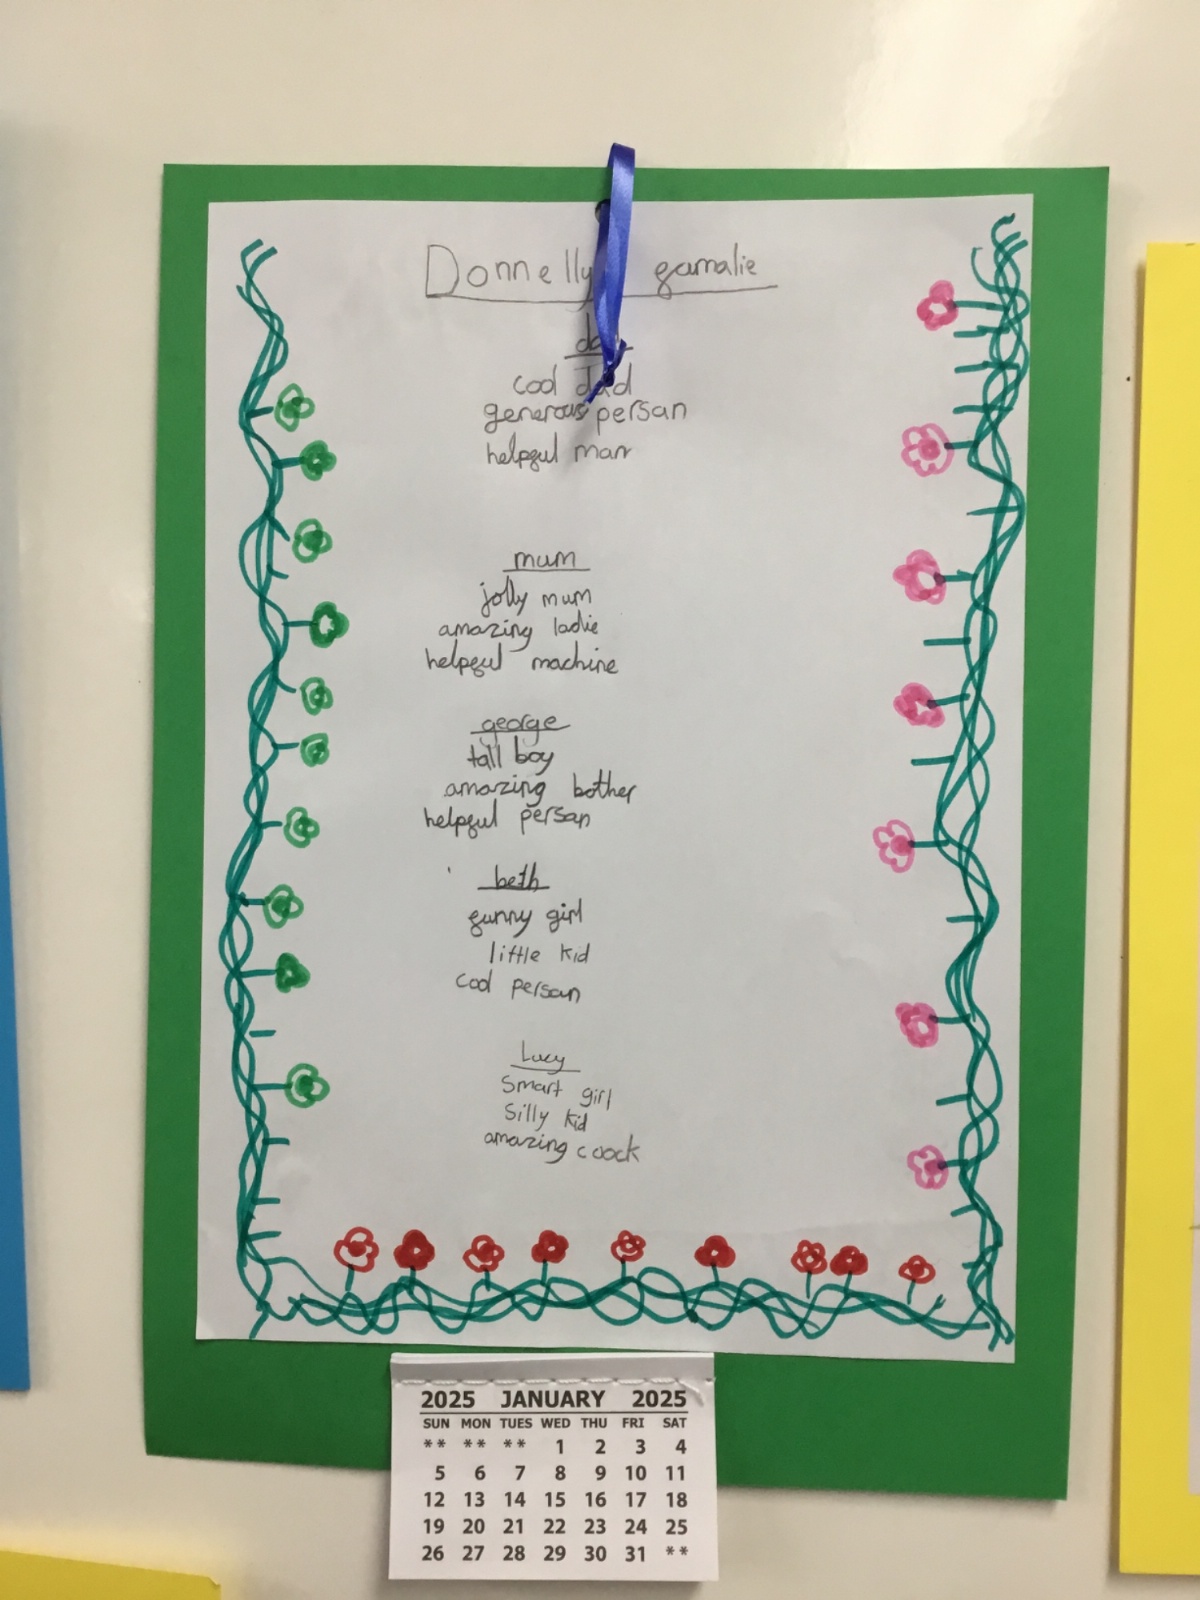 Donnelly famalie
dad
cool dad
generous persan
helpful man
mum
jolly mum
amazing ladie
helpful machine
george
tall boy
amazing bother
helpful persan
beth
funny girl
little kid
cool persan
Lucy
Smart girl
Silly kid
amazing coock
2025 JANUARY 2025
SUN MON TUES WED THU FRI SAT
** ** ** 1 2 3 4
5 6 7 8 9 10 11
12 13 14 15 16 17 18
19 20 21 22 23 24 25
26 27 28 29 30 31 **